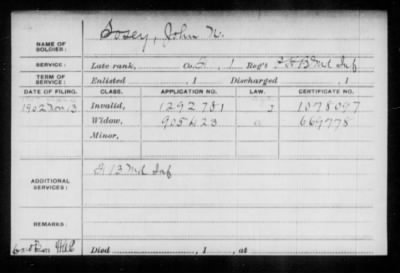 NAME OF SOLDIER: Tosey, John N.
SERVICE: Late rank, Co. G, 1 Reg't P.H.B. Md Inf
TERM OF SERVICE: Enlisted , 1 Discharged , 1
DATE OF FILING. CLASS. APPLICATION NO. LAW. CERTIFICATE NO.
1902 Nov 13 Invalid, 1292781 1078097
Widow, 905623 669778
Minor,
ADDITIONAL SERVICES: 13 Md Inf
REMARKS:
Died , 1 , at